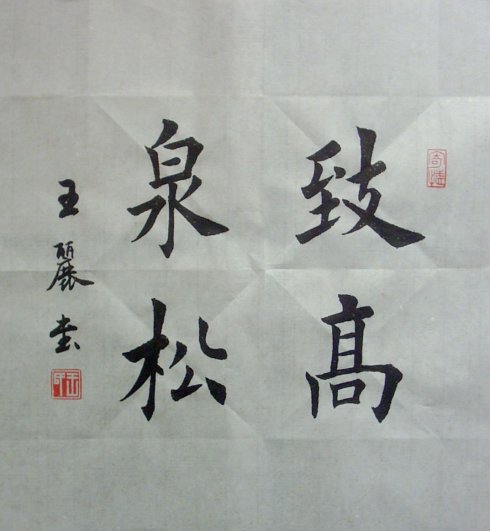 致高
泉松
王麗書